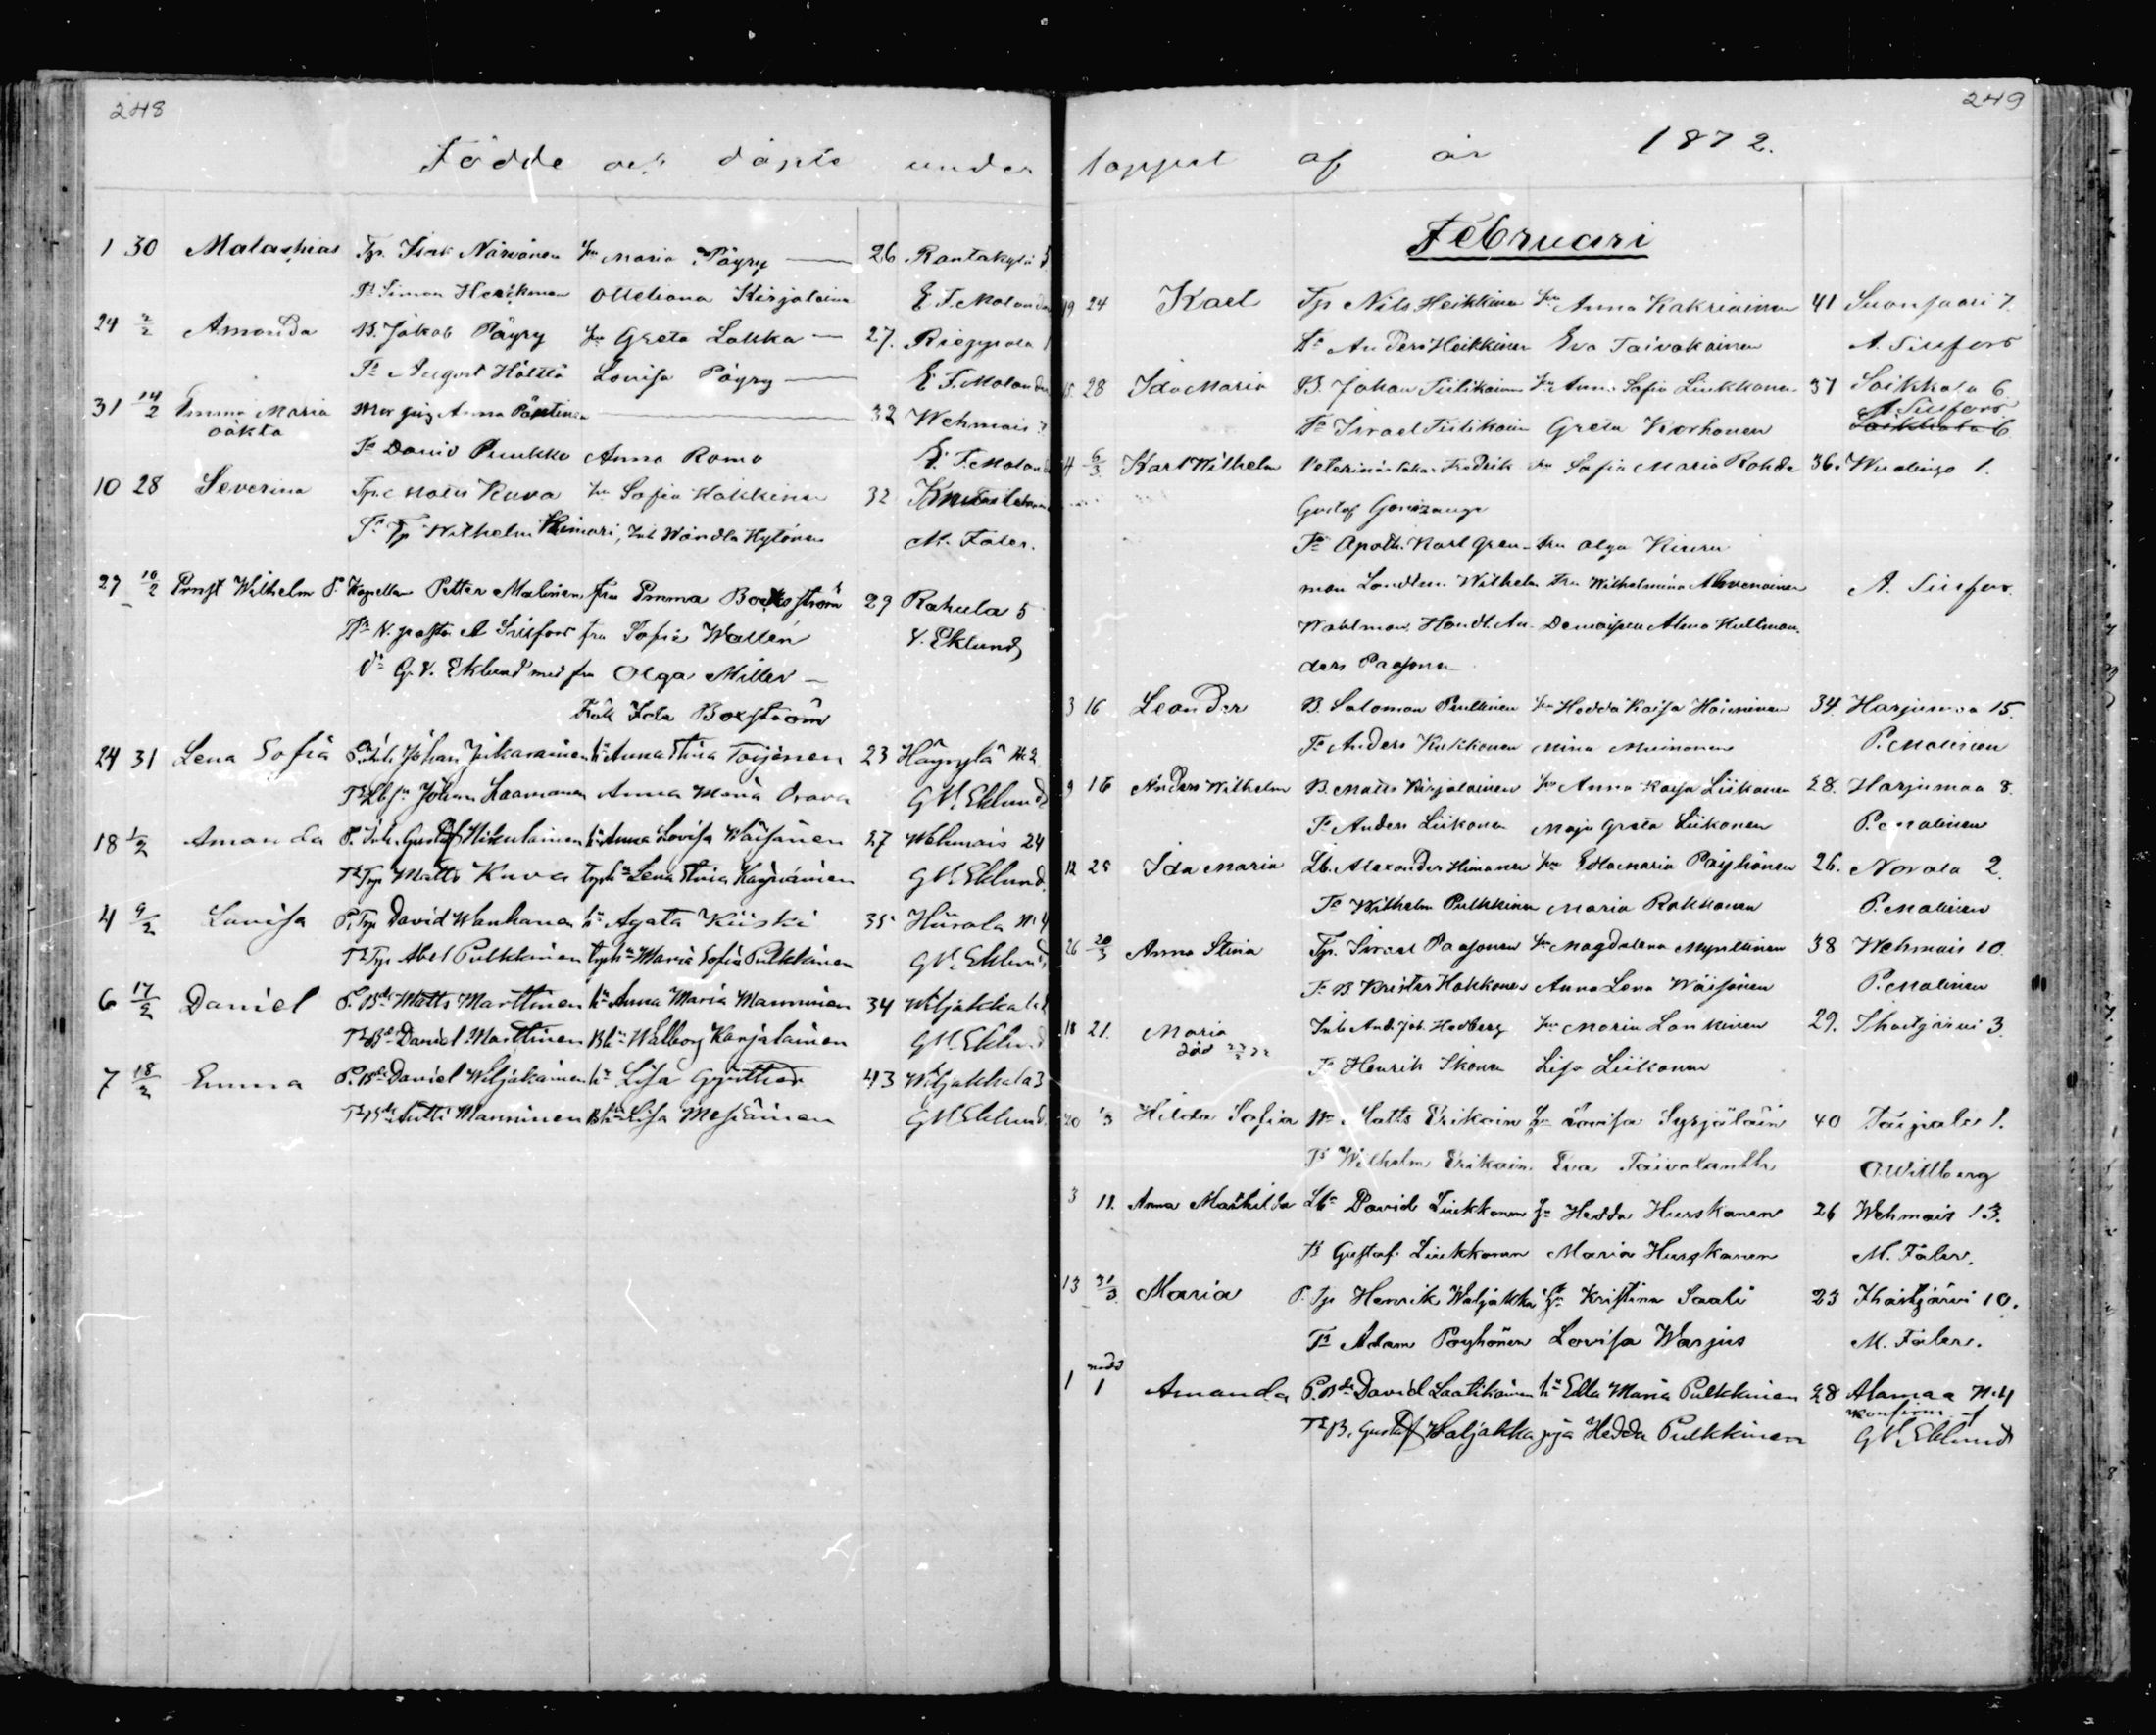 248
Födde och döpte under
1 30 Malaskias Tp. Isak Närvänen hu Maria Päyry — 26 Rantakylä 5
Tt Simon Heikkinen Otteliana Kirjalainen E. F. Molander
24 2/2 Amanda B. Jakob Päyry hu Greta Lakka — 27. Rieppola 1
Tt August Hölttä Lovisa Päyry — E. F. Molander
31 14/2 Emma Maria Mor pig Anna Pöntinen — 32 Wehmais 7
oäkta
Tt David Puukko Anna Romo E. F. Molander
10 28 Severina Tp. Matts Kuva hu Sofia Hakkinen 32
Tt Tp Wilhelm Reimari, Inh Wändla Hytönen M. Faler.
27 10/2 Ernst Wilhelm P. Kapellan Petter Malinen fru Emma Boxström 29 Rahula 5
Tt V. pastor A Sirfors fru Sofia Wallén V. Eklund
do G. V. Eklund med fru Olga Miller —
Frök Ida Boxström
24 31 Lena Sofia P. Inh. Johan Jukarainen hu Anna Stina Toijonen 23 Häyrylä N 2
Tt Lbs Johan Laamanen Anna Maria Orava G V. Eklund
18 1/2 Amanda P. Inh. Gustaf Nikulainen hu Anna Lovisa Wäisänen 27 Wehmais 24
Tt Tp Matts Kuva tph Lena Stina Käyriäinen G V. Eklund
4 9/2 Lovisa P. Tp David Wanhanen hu Agata Kiiski 35 Hürola N 4
Tt Tp Abel Pulkkinen tph Maria Sofia Pulkkinen G V. Eklund
6 17/2 Daniel P. Bde Matts Marttinen hu Anna Maria Manninen 34 Wiljakkala
Tt Bd Daniel Marttinen Bh Walborg Karjalainen G V. Eklund
7 18/2 Emma P. Bde Daniel Wiljakainen hu Lisa Gynther 43 Wiljakkala 3
Tt Bde Antti Manninen Bh Lisa Mesiäinen G V. Eklund
249
loppet af år 1872.
Februari
19 24 Karl Tp Nils Heikkinen hu Anna Kakriainen 41 Suonsaari 7.
Tt Anders Heikkinen Eva Taivakainen A. Sirfors
15. 28 Ida Maria B. Johan Tiilikainen hu Anna Sofia Liukkonen 37 Soikkala 6.
A. Sirfors
Tt Israel Tiilikain Greta Korhonen Soikkala 6.
4 6/3 Karl Wilhelm Veterinär läkar Fredrik fru Sofia Maria Rohde 36. 1.
Gustaf
Tt Apoth. Karl Gran- fru Olga Kiuru
man Landtm. Wilhelm fru Wilhelmina Ahvenainen A. Sirfors.
Wahlman, Handl. An- Demoisellen Alma Hullman.
ders Paasonen
3 16 Leander B. Salomon Pentinen hu Hedda Kaisa Häkninen 34. Harjumaa 15.
Tt Anders Kukkonen Mina Muinonen P. Malinen
9 16 Anders Wilhelm B. Matts Kirjalainen hu Anna Kaisa Liikanen 28. Harjumaa 8.
Tt Anders Liikonen Maja Greta Liikonen P. Malinen
12 25 Ida Maria Lb. Alexander Himanen hu Edla Maria Pöyhönen 26. Norola 2.
Tt Wilhelm Pulkkinen Maria Rokkonen P. Malinen
26 20/3 Anna Stina Tp. Israel Paasonen hu Magdalena Mynttinen 38 Wehmais 10.
Tt B. Krister Hokkonen Anna Lena Wäisänen P. Malinen
18 21. Maria Inh. And. Joh. Hedberg hu Maria Lankinen 29. Ihastjärvi 3.
död 23/2 72
Tt Henrik Ikonen Lisa Liikonen
20 1/3 Hilda Sofia Bd Matts Erikain hu Lovisa Syrjäläin 40 Taipale 1.
Tt Wilhelm Erikain. Eva Taivalantti O. Wittberg
3 11. Anna Mathilda Lb David Liukkonen hu Hedda Hurskanen 26 Wehmais 13.
Tt Gustaf Liukkonen Maria Hurskanen M. Faler.
13 31/3 Maria P. Tp Henrik Waljakka hu Kristina Saali 23 Ihastjärvi 10.
Tt Adam Pöyhönen Lovisa Warjus M. Faler.
nödd
1 1 Amanda P. Bde David Laatikainen hu Edla Maria Pulkkinen 28 Alamaa N 4
konfirm. af
Tt B. Gustaf Waljakka piga Hedda Pulkkinen G V. Eklund